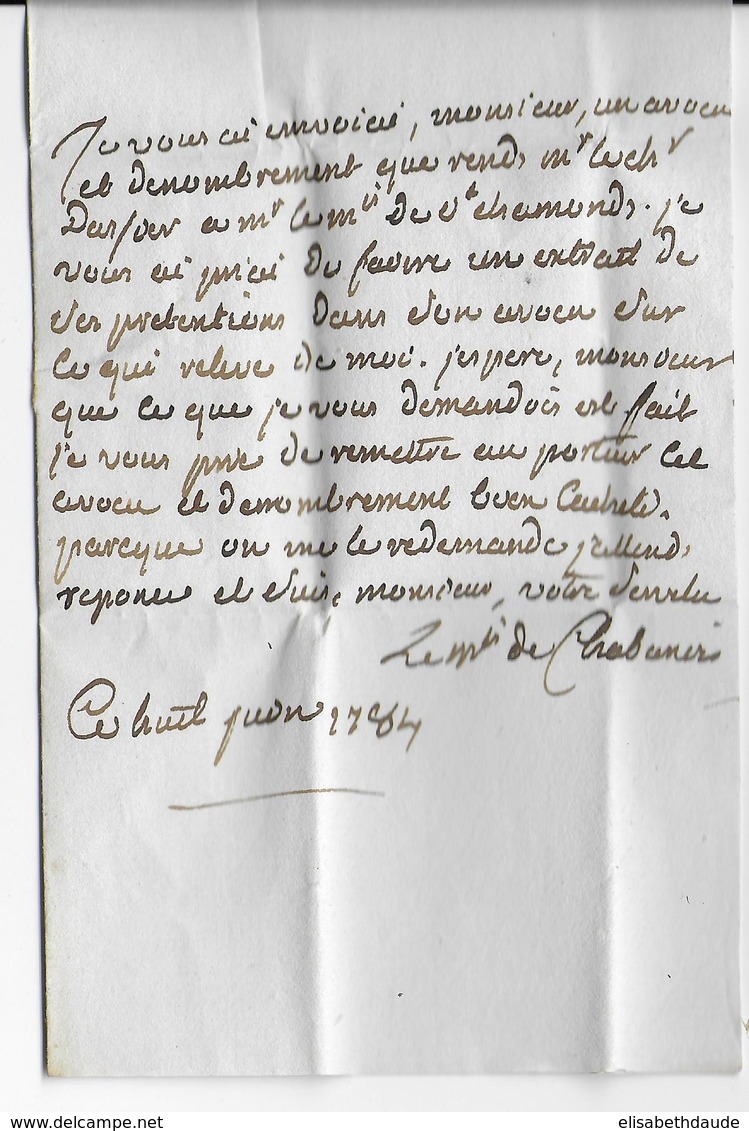 Je vous ai envoiai, monsieur, un avoeu
et denombrement que rends mr le chr
a mr le mis de st chamonds. je
vous ai priai de faire un extrait de
ses pretentions dans son avoeu sur
ce qui releve de moi. j'espere, monsieur
que ce que je vous demandois est fait
je vous prie de remettre au porteur cet
avoeu et denombrement bien cacheté.
parceque on me le redemande j'attends
reponce et suis, monsieur, votre
Le mis de Chabanois
Ce huit juin 1784
www.delcampe.net
elisabethdaude